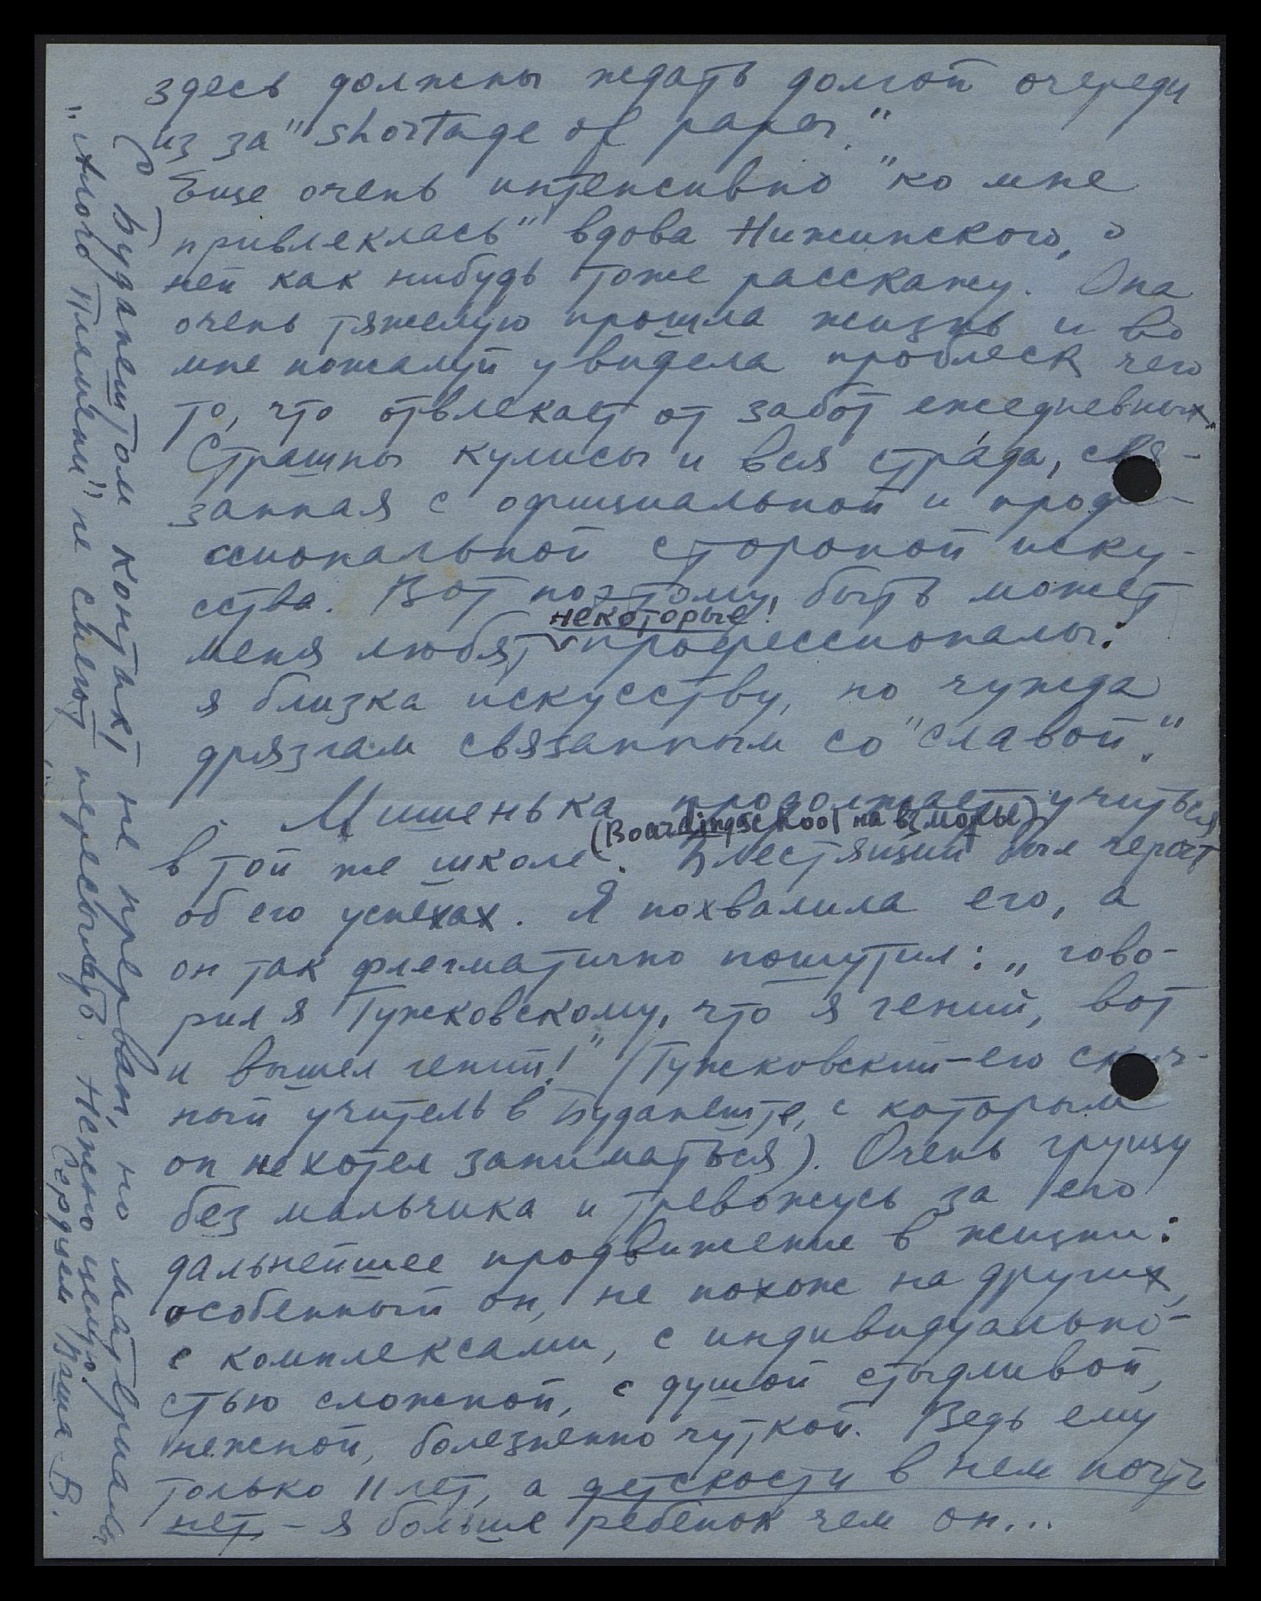 здесь должны ждать долгой очереди
из за "shortage of paper."
Еще очень интенсивно "ко мне
привлеклась" вдова Нижинского, о
ней как нибудь тоже расскажу. Она
очень тяжелую прошла жизнь и во
мне пожалуй увидела проблеск чего
то, что отвлекает от забот ежедневных.
Страшны кулисы и вся стра́да, свя-
занная с официальной и профе-
ссиональной стороной иску-
сства. Вот поэтому, быть может
некоторые!
меня любят профессионалы:
я близка искусству, но чужда
дрязгам связанным со "славой."
Мишенька продолжает учиться
(Boardingschool на взморье)
в той же школе. Блестящий был
об его успехах. Я похвалила его, а
он так флегматично пошутил: „гово-
рил я Тужковскому, что я гений, вот
и вышел гений!" (Тужковский - его скуч-
ный учитель в Будапеште, с которым
он не хотел заниматься). Очень грущу
без мальчика и тревожусь за его
дальнейшее продвижение в жизни:
особенный он, не похож на других,
с комплексами, с индивидуально-
стью сложной, с душой стыдливой,
нежной, болезненно чуткой. Ведь ему
только 11 лет, а детскости в нем почти
нет - я больше ребенок чем он...
С Будапештом контакт не прерван, но материалы
"Алого Пламени" не смеют пересылать. Нежно целую!
Сердцем Ваша В.